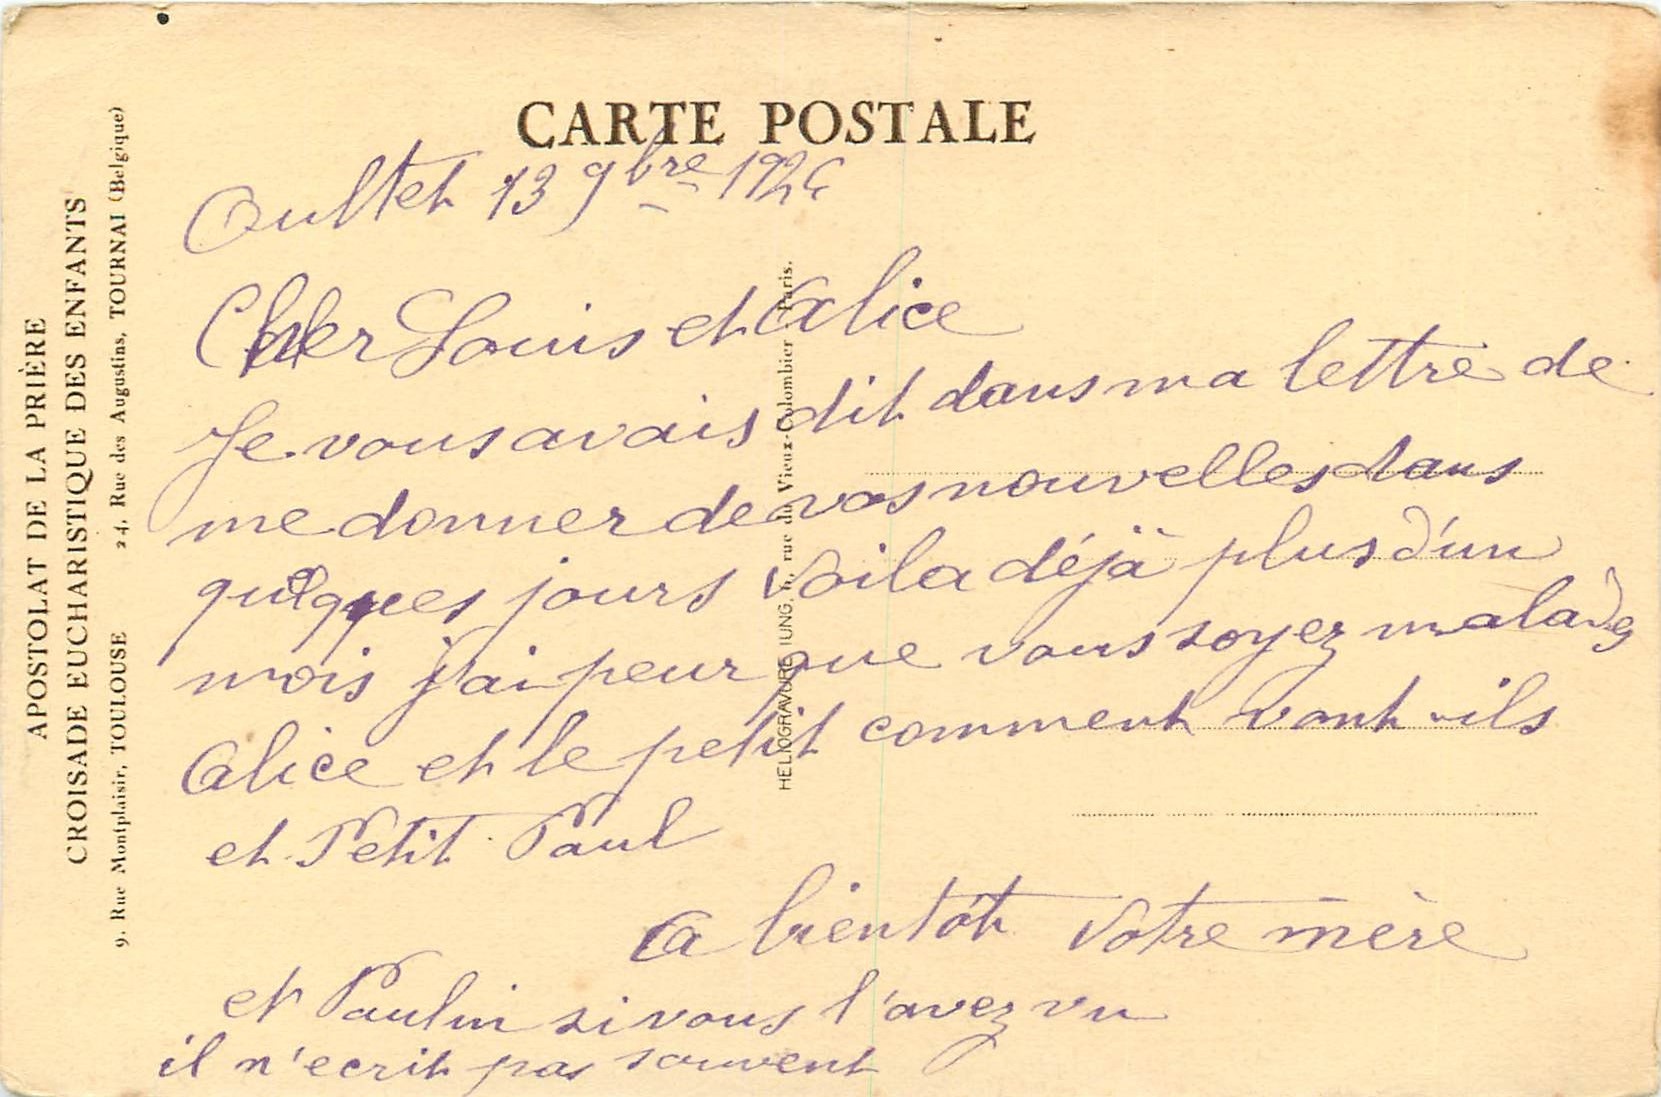 CARTE POSTALE
Oultet 13 9bre 1926
Cher Louis et Alice
Je vous avais dit dans ma lettre de
me donner de vos nouvelles dans
quelques jours voila déjà plus d'un
mois j'ai peur que vous soyez malades
Alice et le petit comment vont-ils
et Petit Paul
a bientôt votre mère
et Paulin si vous l'avez vu
il n'ecrit pas souvent
APOSTOLAT DE LA PRIÈRE
CROISADE EUCHARISTIQUE DES ENFANTS
9, Rue Montplaisir, TOULOUSE 24, Rue des Augustins, TOURNAI (Belgique)
HELIOGRAVURE rue du Vieux-Colombier Paris.